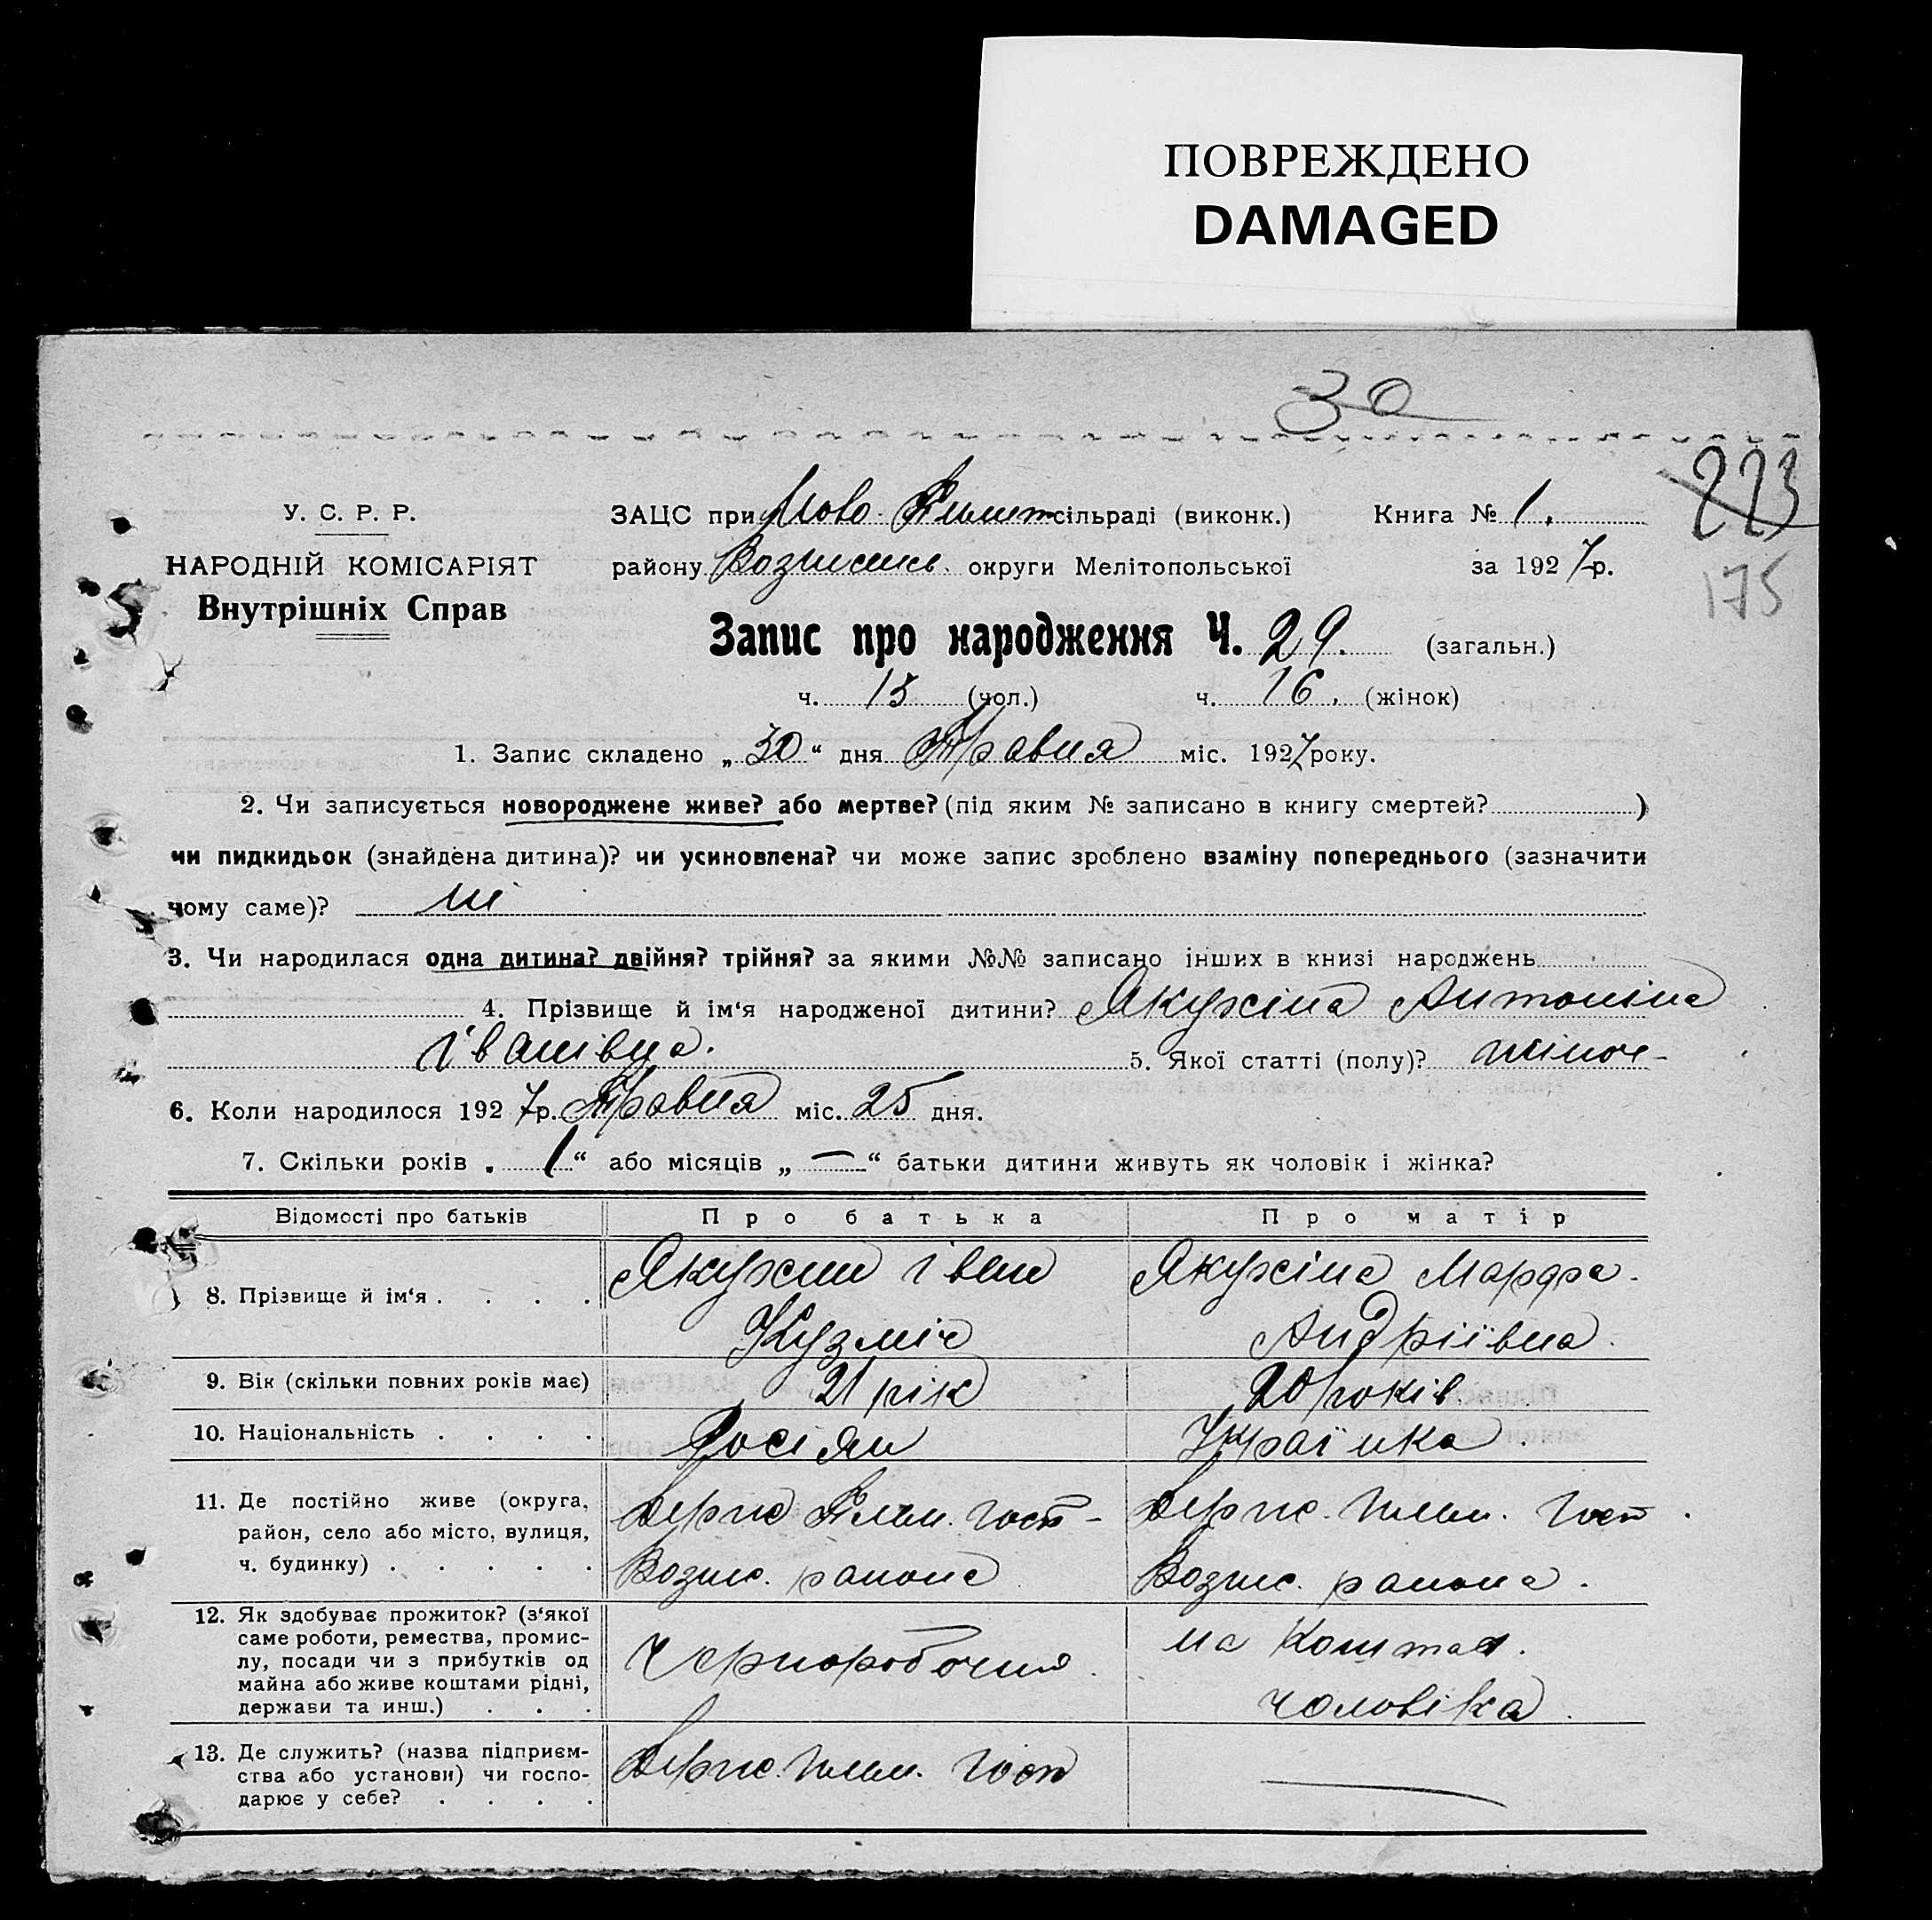 ПОВРЕЖДЕНО
DAMAGED
30
223
175
У. С. Р. Р.
НАРОДНІЙ КОМІСАРІЯТ
Внутрішніх Справ
ЗАЦС при Ново- сільраді (виконк.) Книга № 1.
району округи Мелітопольської за 1927 р.
Запис про народження Ч. 29. (загальн.)
ч. 13 (чол.) ч. 16. (жінок)
1. Запис складено „30“ дня Травня міс. 1927 року.
2. Чи записується новороджене живе? або мертве? (під яким № записано в книгу смертей? )
чи пидкидьок (знайдена дитина)? чи усиновлена? чи може запис зроблено взаміну попереднього (зазначити
чому саме)? ні
3. Чи народилася одна дитина? двійня? трійня? за якими №№ записано інших в книзі народжень
4. Прізвище й ім‘я народженої дитини? Якухіна Антоніна
Іванівна. 5. Якої статті (полу)? жіноч-
6. Коли народилося 1927 р. Травня міс. 25 дня.
7. Скільки років „ 1 “ або місяців „ — “ батьки дитини живуть як чоловік і жінка?
Відомості про батьків Про батька Про матір
8. Прізвище й ім‘я . . . . Якухин Іван Якухіна Марфа
Кузміч Андріївна.
9. Вік (скільки повних років має) 21 рік 20 років
10. Національність . . . . Росіян Українка.
11. Де постійно живе (округа,
район, село або місто, вулиця,
ч. будинку) . . . . .
Держ Плем. Госп-
Возн. раиона
Держ. Плем. Госп.
Возн. раиона.
12. Як здобуває прожиток? (з‘якої
саме роботи, ремества, промис-
лу, посади чи з прибутків од
майна або живе коштами рідні,
держави та инш.) . . .
Чернороб
на кошта
чоловіка.
13. Де служить? (назва підприєм-
ства або установи) чи госпо-
дарює у себе? . . . .
Держ. Плем. Госп
—